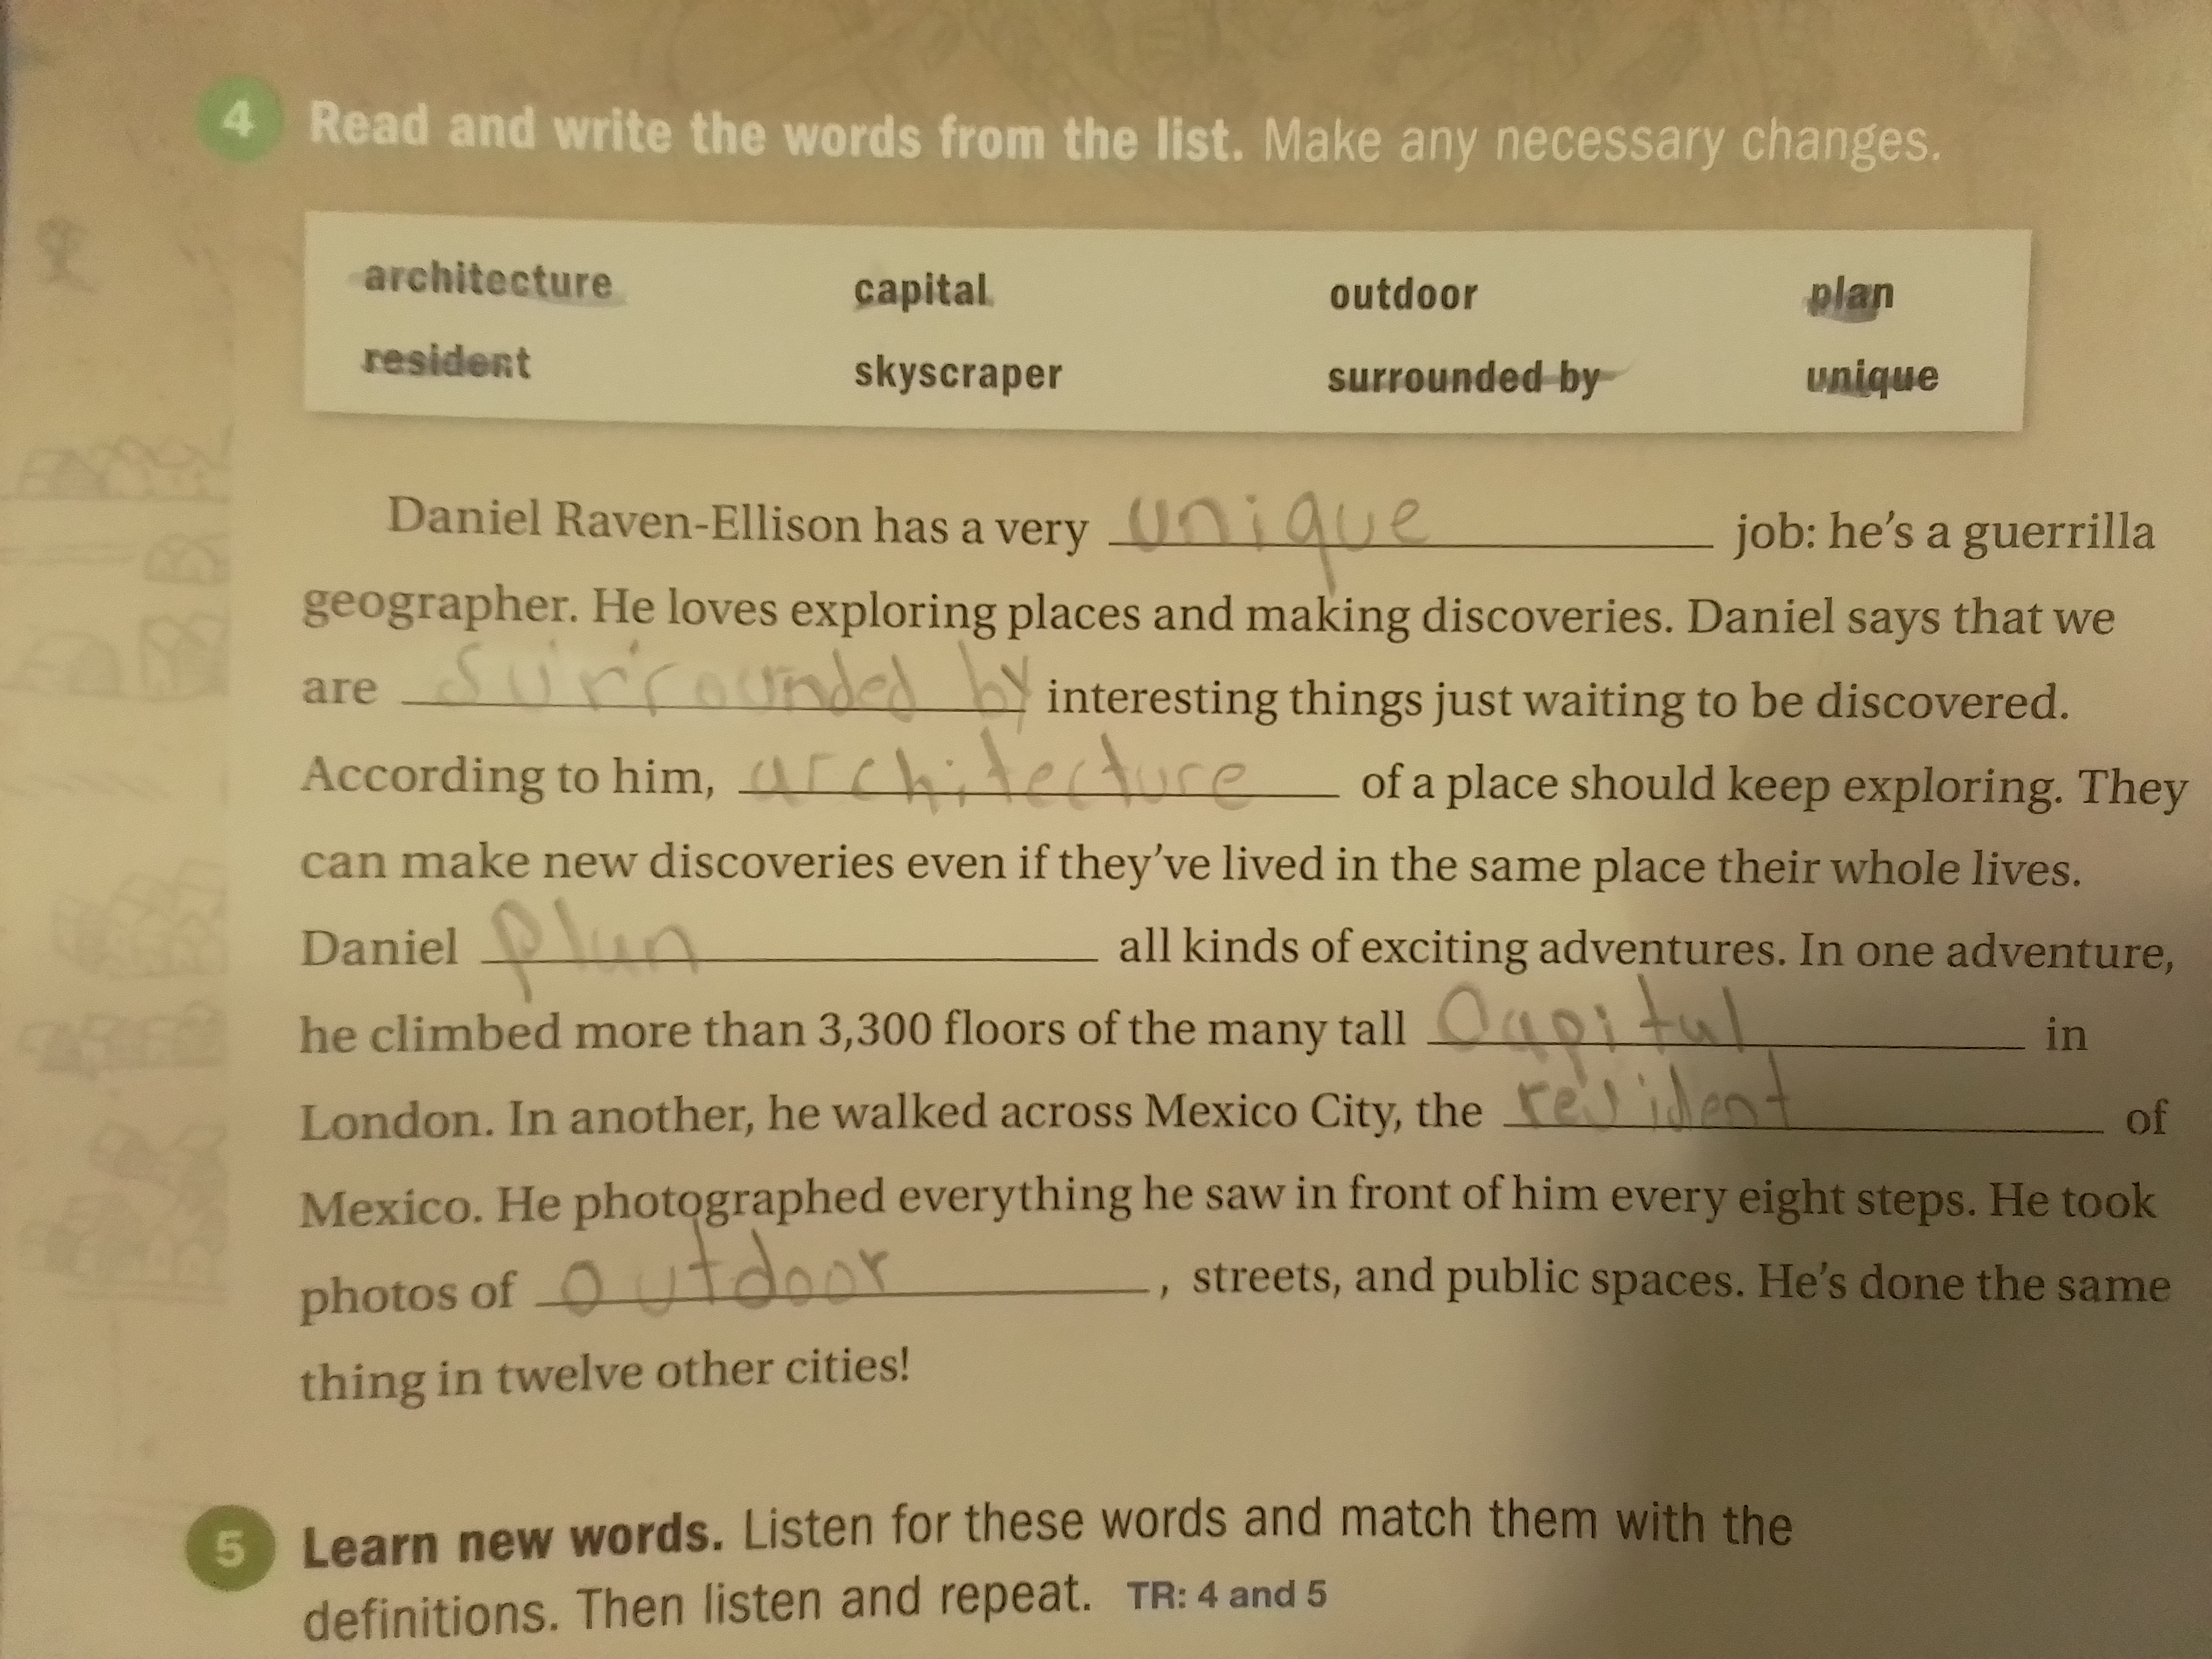 4 Read and write the words from the list. Make any necessary changes.
architecture capital outdoor plan
resident skyscraper surrounded by unique
Daniel Raven-Ellison has a very unique job: he's a guerrilla
geographer. He loves exploring places and making discoveries. Daniel says that we
are surrounded by interesting things just waiting to be discovered.
According to him, architecture of a place should keep exploring. They
can make new discoveries even if they've lived in the same place their whole lives.
Daniel plan all kinds of exciting adventures. In one adventure,
he climbed more than 3,300 floors of the many tall Capital in
London. In another, he walked across Mexico City, the resident of
Mexico. He photographed everything he saw in front of him every eight steps. He took
photos of outdoor, streets, and public spaces. He's done the same
thing in twelve other cities!
5 Learn new words. Listen for these words and match them with the
definitions. Then listen and repeat. TR: 4 and 5